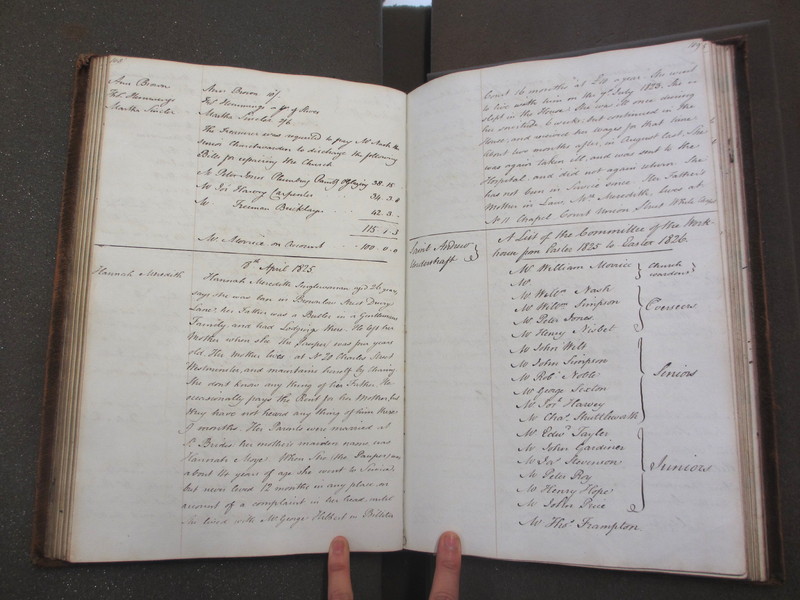 Ann Brown
Js. Hemmings
Martha Sinclar
Ann Brown
Js. Hemmings
Martha Sinclar 2/6
The Treasurer was requested to pay Mr Nash the
senior Churchwarden to discharge the following
Bills for repairing the Church
Mr Peter Jones Plumbing Painting & Glazing 38. 18
Mr Jos Harvey Carpenter 34. 3. 0
Mr Freeman Bricklayer 42. 3. -
115. 1. 3
Mr Morrice on Account 100. 0. 0
April 1825
Hannah Meredith
Hannah Meredith Singlewoman aged 26 years
says she was born in Brownlow Street Drury
Lane, her Father was a Butler in a Gentlemans
Family, and had Lodgings there. He left her
Mother when she the Pauper was five years
old. Her Mother lives at No 20 Charles Street
Westminster, and maintains herself by Charing
She dont know any thing of her Father He
occasionally pays the Rent for her Mother, but
they have not heard any thing of him these
9 months. Her Parents were married at
St. Brides her mothers maiden name was
Hannah Moye. When she (the Pauper) was
about 14 years of age she went to Service
but never lived 12 months in any place on
account of a complaint in her head, until
she lived with Mr George Hibbert in Billiter
Court 16 months at £8 a year. She went
to live with him on the 9th July 1823. She
slept in the House. She was ill once during
her servitude 6 weeks, but continued in the
House, and received her wages for that time
About two months after, in August last, She
was again taken ill and was sent to the
Hospital, and did not again return She
has not been in Service since Her Father's
Mother in Law, Mrs Meredith, lives at
No 11 Chapel Court Union Street
Saint Andrew
Undershaft
A List of the Committee of the Work-
house from Easter 1825 to Easter 1826.
Mr William Morrice
Mr
Church
wardens
Mr Willm Nash
Mr Willm Simpson
Mr Peter Jones
Mr Henry Nisbet
Overseers
Mr John Welt
Mr John Simpson
Mr Robt Noble
Mr George Sexton
Mr Jos. Harvey
Mr Chas. Shuttleworth
Seniors
Mr Edwd Taylor
Mr John Gardiner
Mr Jas Stevenson
Mr Peter Roy
Mr Henry Hope
Mr John Price
Juniors
Mr Thos. Frampton